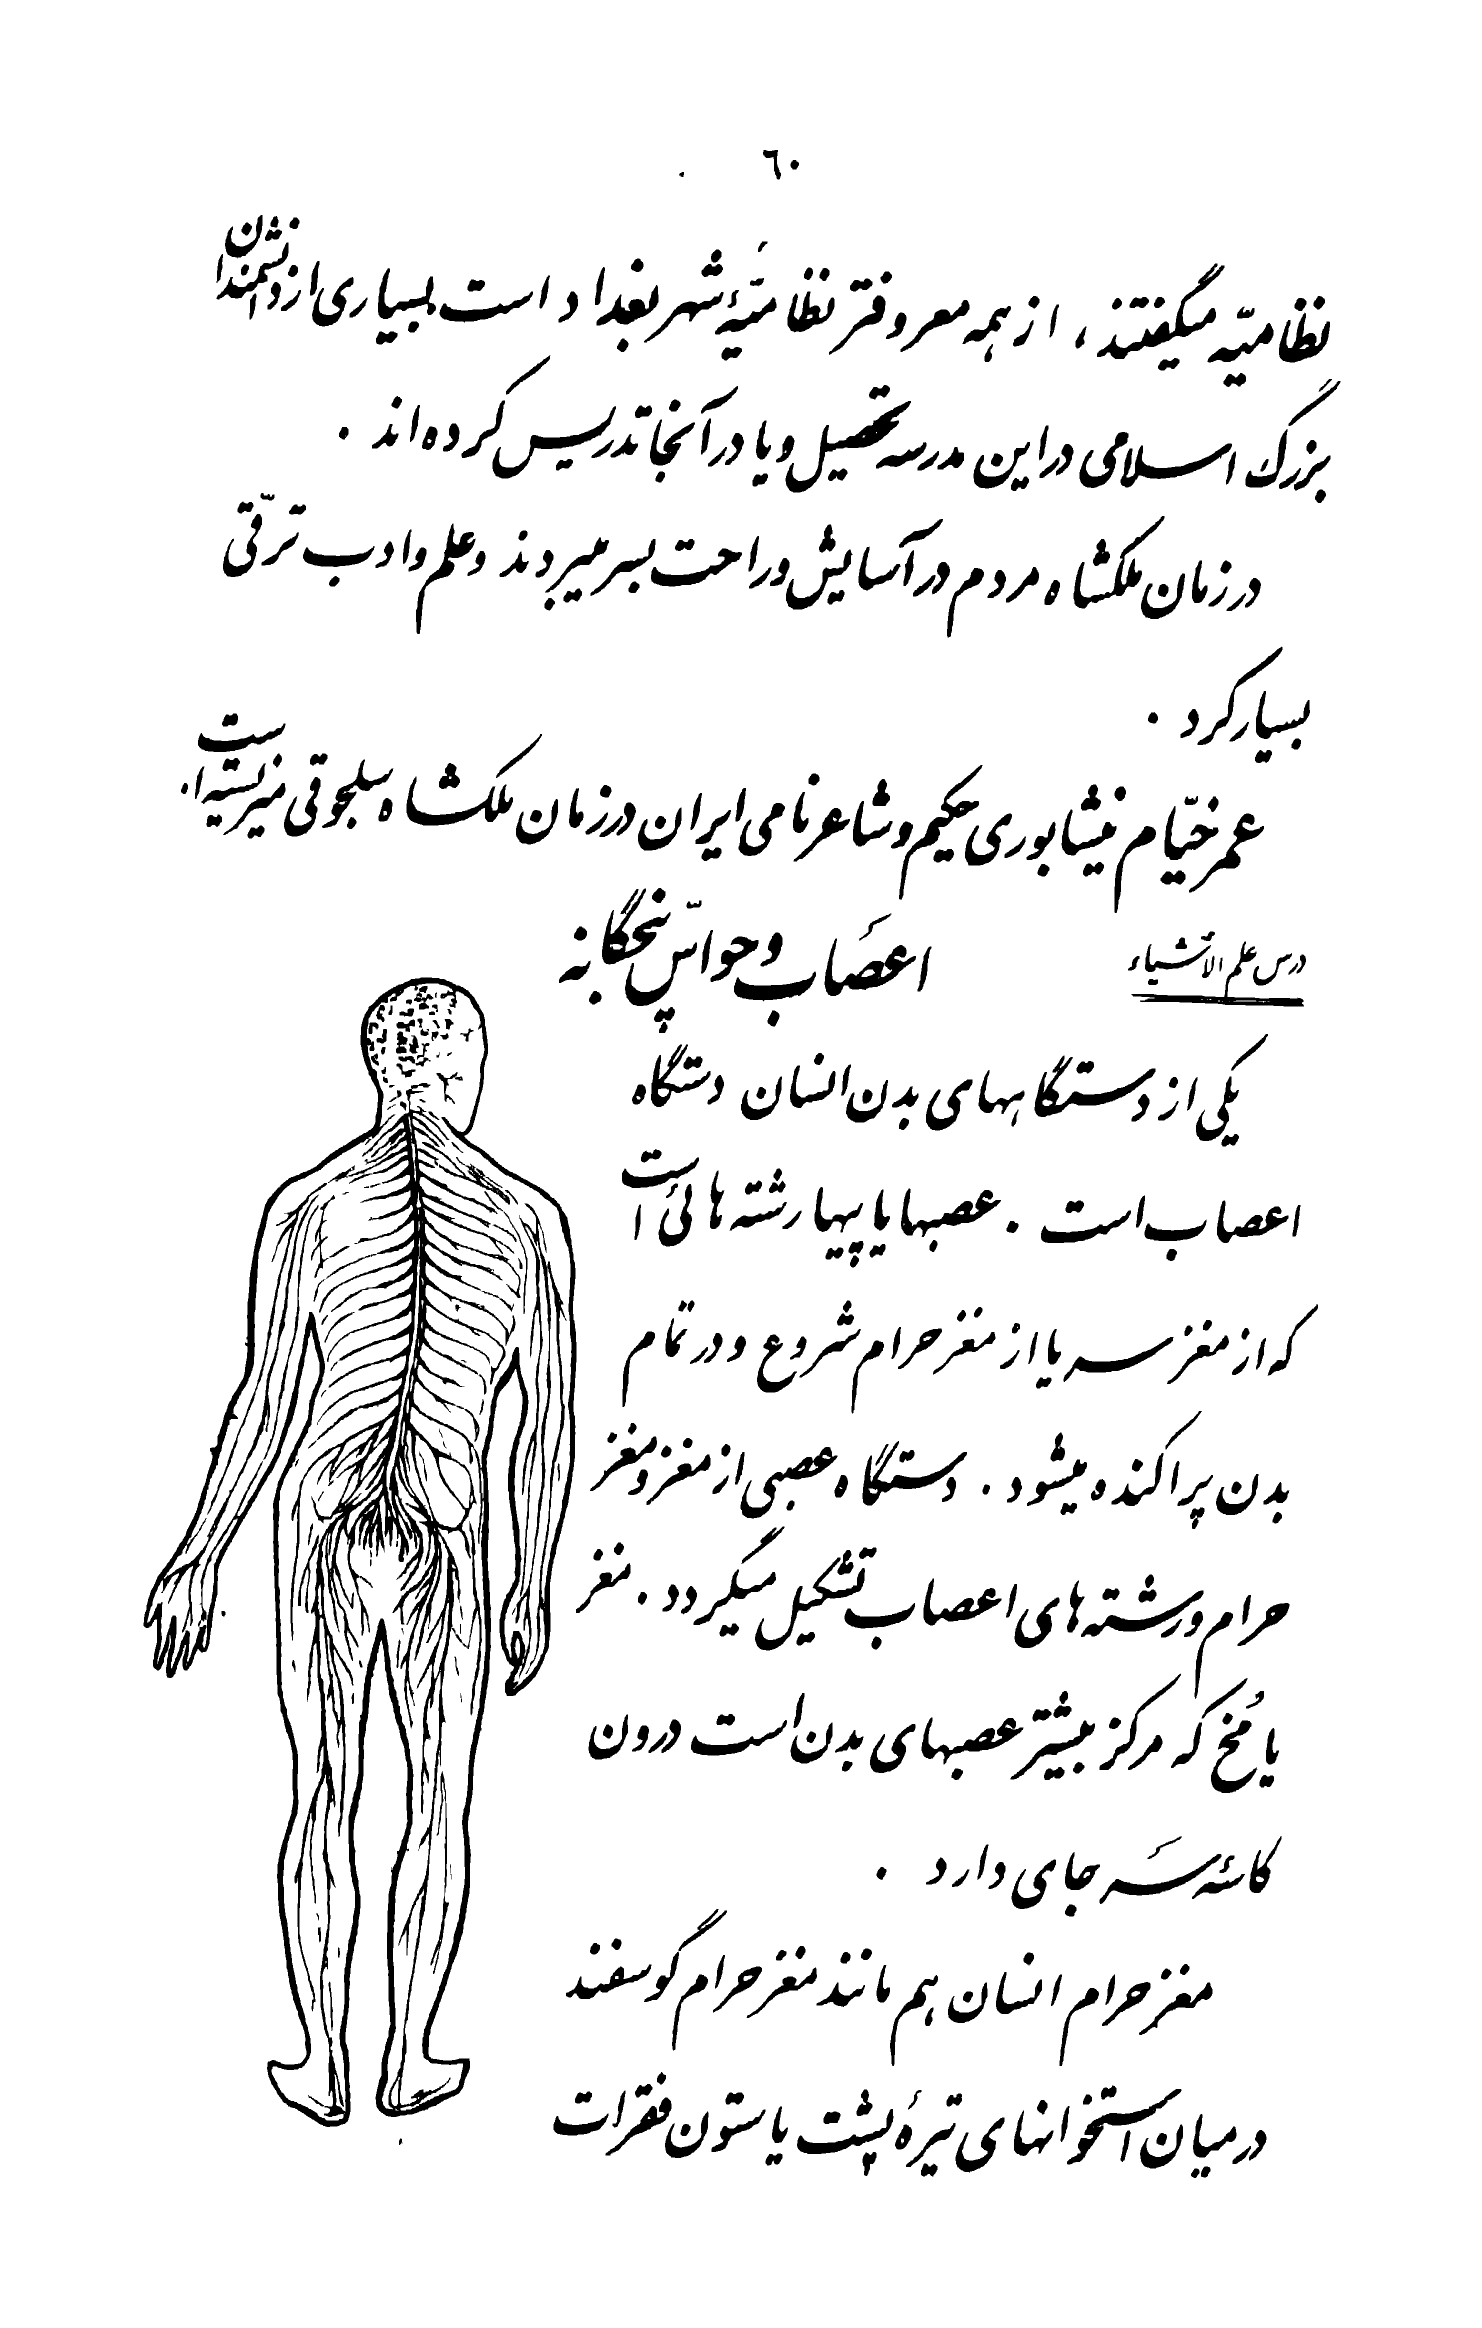 ٦٠
نظامیّه میگفتند ، از همه معروفتر نظامیّهٔ شهر بغداد است بسیاری از دانشمندان
بزرگ اسلامی در این مدرسه تحصیل و یا در آنجا تدریس کرده‌اند .
در زمان ملکشاه مردم در آسایش و راحت بسر میبردند و علم و ادب ترقّی
بسیار کرد .
عمر خیّام نیشابوری حکیم و شاعر نامی ایران در زمان ملکشاه سلجوقی میزیسته است .
درس علم الأشیاء
اعصَاب و حواسّ پنجگانه
یکی از دستگاههای بدن انسان دستگاه
اعصاب است . عصبها یا پیها رشته هائی است
که از مغز سر یا از مغز حرام شروع و در تمام
بدن پراکنده میشود . دستگاه عصبی از مغز و مغز
حرام و رشته های اعصاب تشکیل میگردد . مغز
یا مُخ که مرکز بیشتر عصبهای بدن است درون
کاسهٔ سَر جای دارد .
مغز حرام انسان هم مانند مغز حرام گوسفند
در میان استخوانهای تیرهٔ پشت یا ستون فقرات